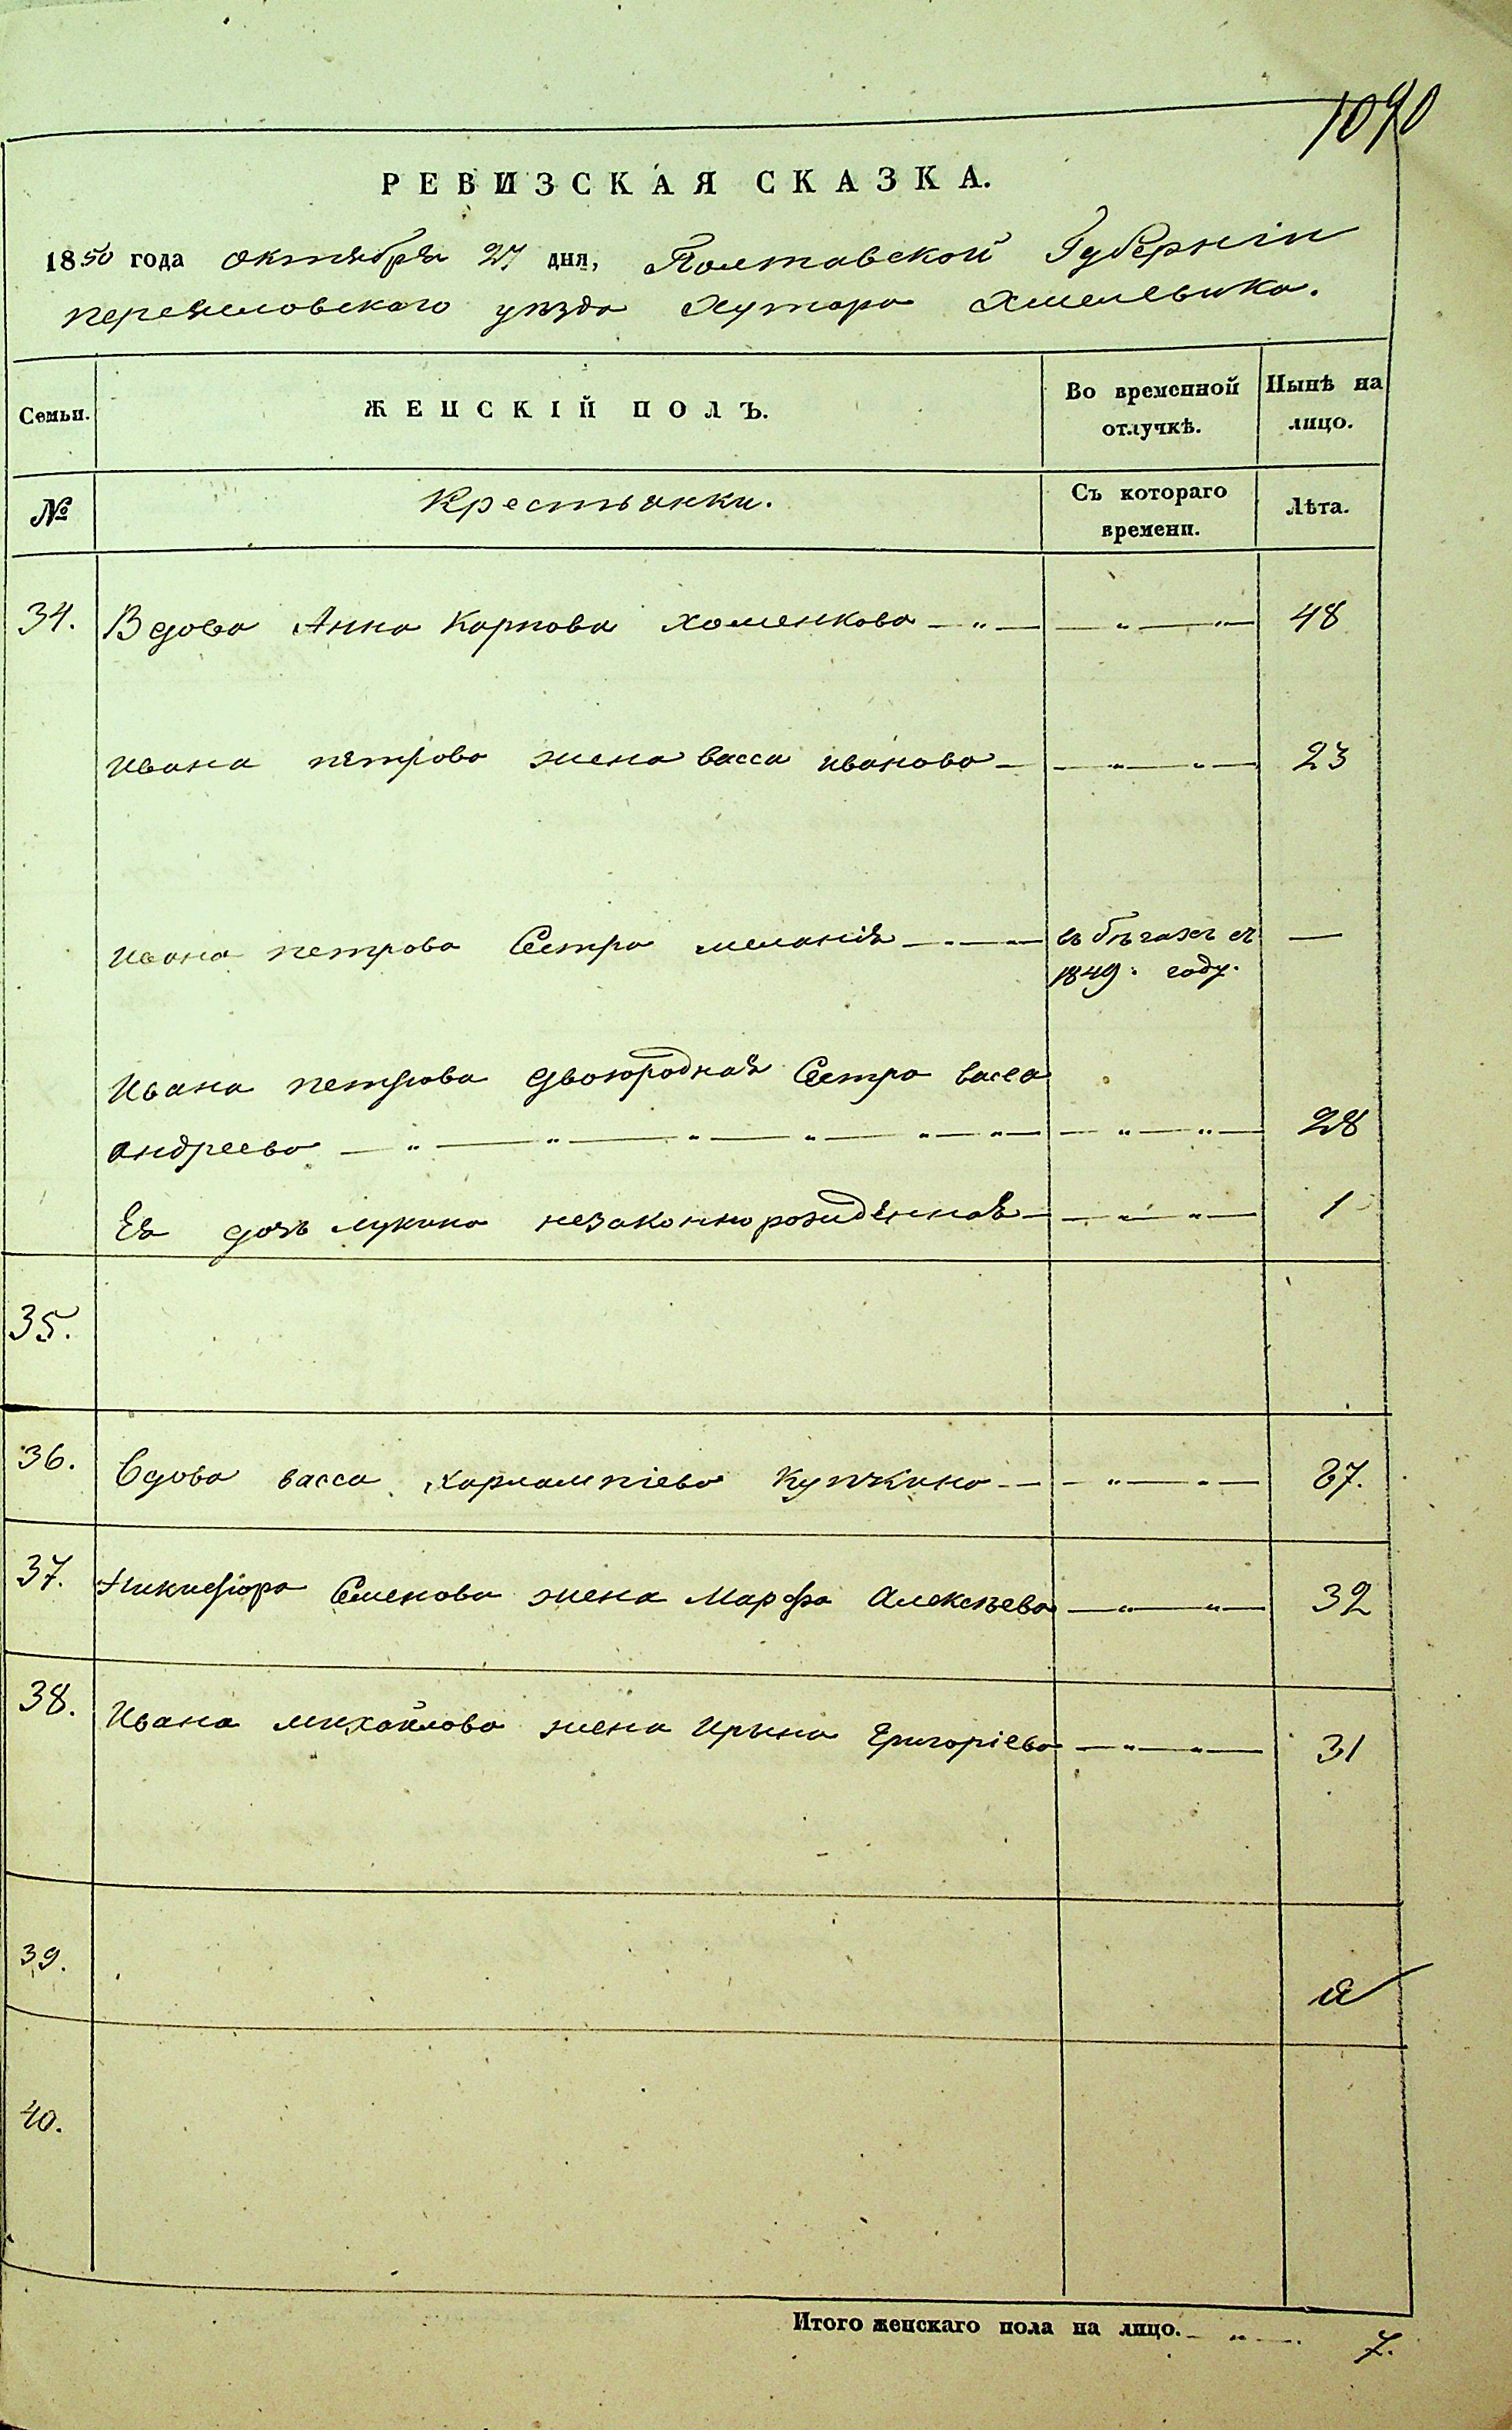 1090
РЕВИЗСКАЯ СКАЗКА.
1850 года октября 27 дня, Полтавской Губерніи
переяловского уѣзда Хутора Хмелевика.
Семьи.
ЖЕНСКІЙ ПОЛЪ.
Во временной
отлучкѣ.
Нынѣ на
лицо.
№
Крестьянки.
Съ котораго
времени.
Лѣта.
34. Вдова Анна Карпова хоменкова — „ — — „ — „ — 48
Ивана петрова жена васса иванова — — „ — „ — 23
Ивана петрова Сестра меланія — „ — въ бѣгахъ съ —
1849. году.
Ивана петрова двоюродная Сестра васса
андреева — „ — „ — „ — „ — „ — „ — — „ — „ — 28
Ея дочь лукина незаконнорожденная — — „ — „ — 1
35.
36. Вдова васса харлампіева Купчина — — „ — „ — 37.
37. Никифора Семенова жена Марфа Алексѣева — „ — „ — 32
38. Ивана михайлова жена Ирина Григоріева — „ — „ — 31
39.
40.
Итого женскаго пола на лицо. — „ — . 7.